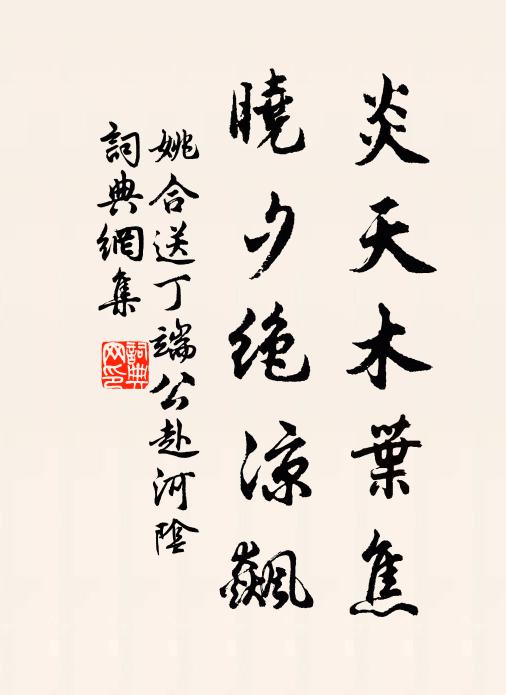 炎天木葉焦
曉夕絶涼飆
姚合送丁端公赴河陰
詞典網集
詞典网印